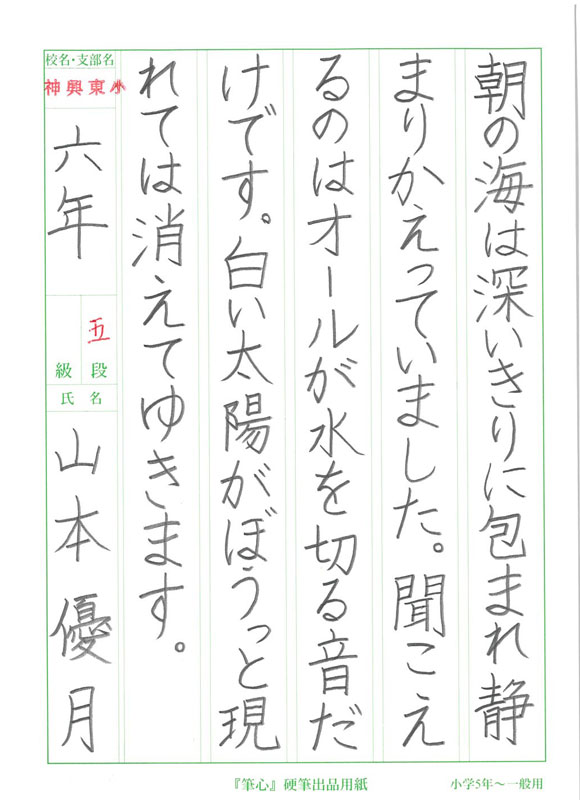 朝の海は深いきりに包まれ静
まりかえっていました。聞こえ
るのはオールが水を切る音だ
けです。白い太陽がぼうっと現
れては消えてゆきます。
校名・支部名
神興東小
六年
五
級段
氏名
山本優月
『筆心』硬筆出品用紙
小学5年～一般用